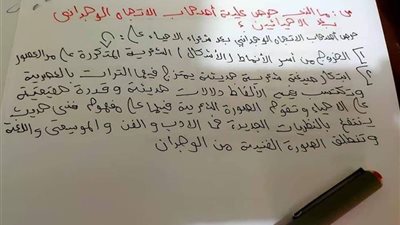 س: ما الذي حرص عليه أصحاب الاتجاه الوجداني
بعد الإحيائيين ؟
حرص أصحاب الاتجاه الوجداني بعد شعراء الإحياء على :
١) الخروج من أسر الأنماط (الأشكال) الشعرية المتكررة على مر العصور
٢) ابتكار صيغة شعرية حديثة يمتزج فيها التراث بالعصرية
وتكتسب فيه الألفاظ دلالات حديثة وقدرة حقيقية
على الإحياء وتقوم الصورة الشعرية فيها على مفهوم فني حديث
ينتفع بالنظريات الجديدة في الأدب والفن والموسيقى واللغة
وتنطلق الصورة الفنية من الوجدان